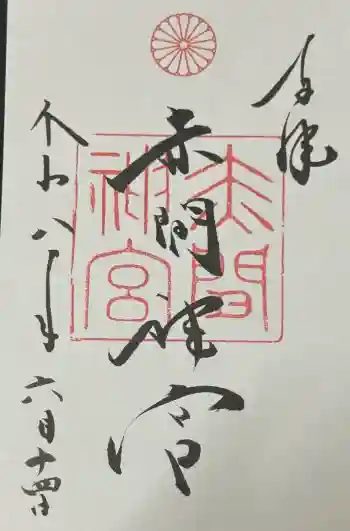 奉拝
赤間神宮
赤間
神宮
令和八年
六月十四日